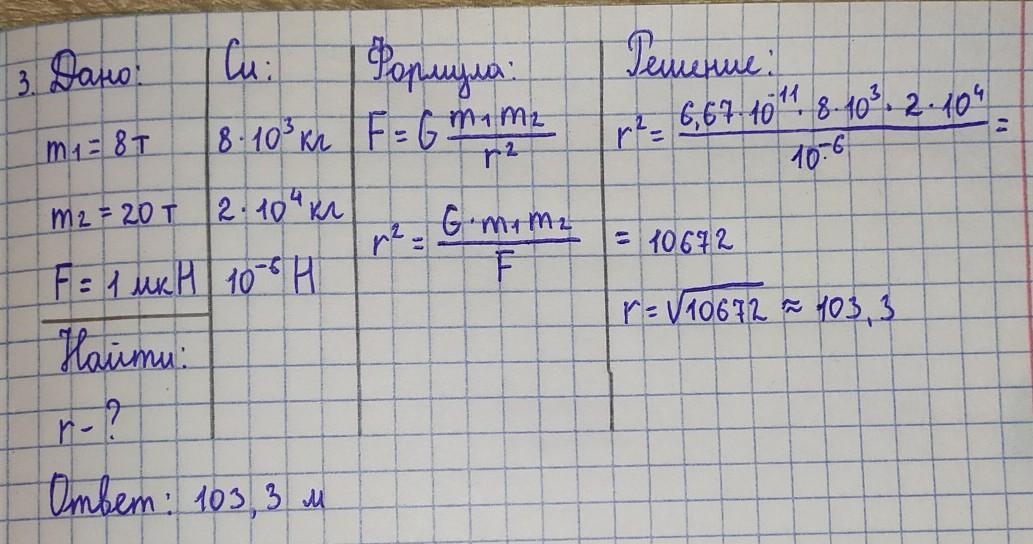 3. Дано:
m₁ = 8 т
m₂ = 20 т
F = 1 мкН
Найти:
r - ?
Си:
8 · 10³ кг
2 · 10⁴ кг
10⁻⁶ Н
Формула:
F = G m₁ m₂ / r²
r² = G · m₁ m₂ / F
Решение:
r² = 6,67 · 10⁻¹¹ · 8 · 10³ · 2 · 10⁴ / 10⁻⁶ =
= 10672
r = √10672 ≈ 103,3
Ответ: 103,3 м